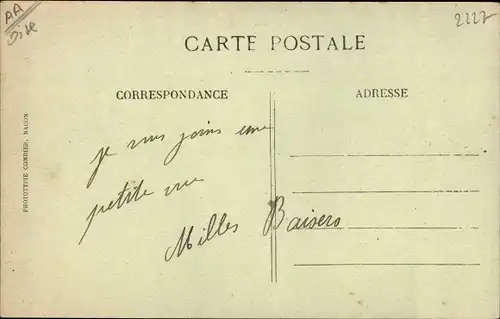 AA
Oise
2227
CARTE POSTALE
CORRESPONDANCE
ADRESSE
je vous joins une
petite vue
Milles Baisers
PHOTOTYPIE COMBIER, MACON